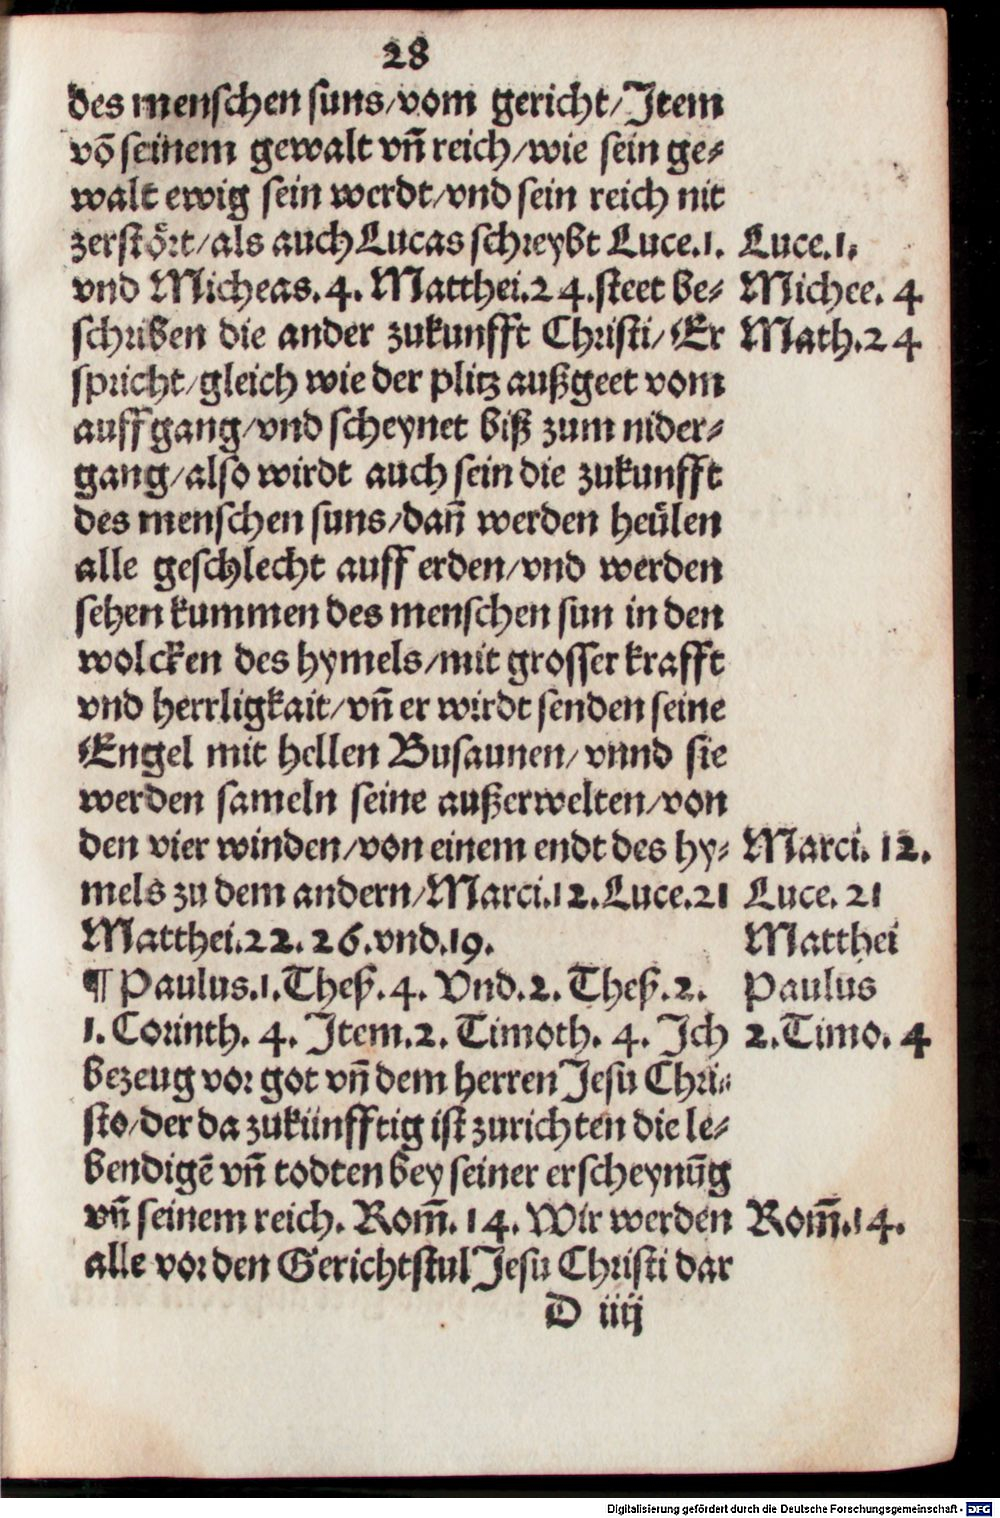 28
des menschen suns/vom gericht/Item
võ seinem gewalt vñ reich/wie sein ge⸗
walt ewig sein werdt/vnd sein reich nit
zerstört/als auch Lucas schreybt Luce.1. Luce.1.
vnd Micheas.4. Matthei.24.steet be⸗ Michee. 4
schriben die ander zukunfft Christi/Er Math.24
spricht/gleich wie der plitz außgeet vom
auffgang/vnd scheynet biß zum nider⸗
gang/also wirdt auch sein die zukunfft
des menschen suns/dañ werden heülen
alle geschlecht auff erden/vnd werden
sehen kummen des menschen sun in den
wolcken des hymels/mit grosser krafft
vnd herrligkait/vñ er wirdt senden seine
Engel mit hellen Busaunen/vnnd sie
werden sameln seine außerwelten/von
den vier winden/von einem endt des hy⸗ Marci. 12.
mels zu dem andern/Marci.12.Luce.21 Luce. 21
Matthei.22.26.vnd.19. Matthei
¶ Paulus.1.Theß.4. Vnd.2. Theß.2. Paulus
1. Corinth. 4. Item.2. Timoth. 4. Ich 2.Timo. 4
bezeug vor got vñ dem herren Jesu Chri⸗
sto/der da zukünfftig ist zurichten die le⸗
bendigẽ vñ todten bey seiner erscheynũg
vñ seinem reich. Rom̃. 14. Wir werden Rom̃.14.
alle vor den Gerichtstul Jesu Christi dar
D iiij
Digitalisierung gefördert durch die Deutsche Forschungsgemeinschaft - DFG